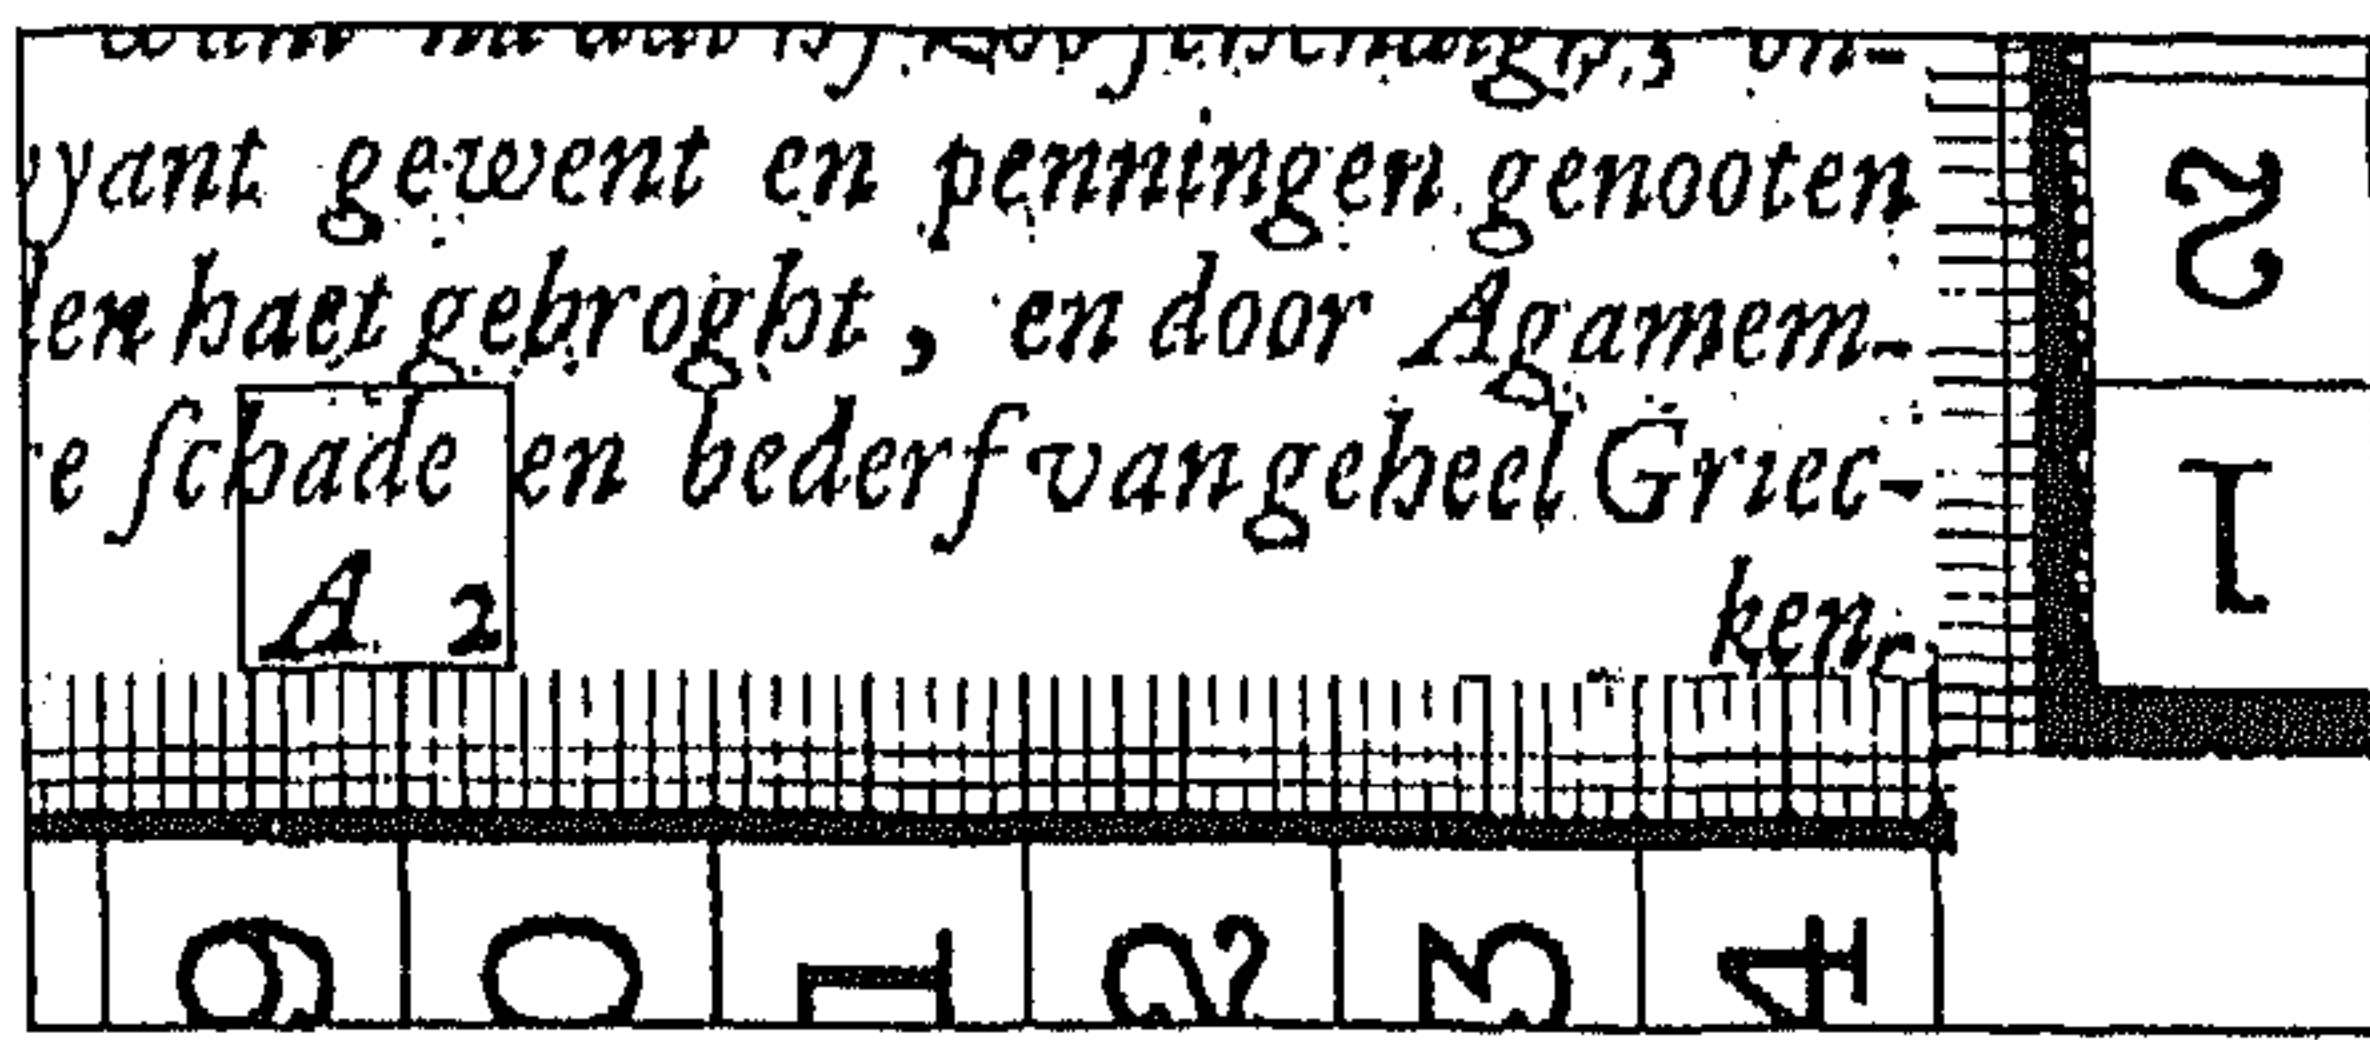 vyant gewent en penningen genooten
len haet gebroght, en door Agamem-
e ſchade en bederf van geheel Griec-
A 2
ken
2
1
9 0 1 2 3 4